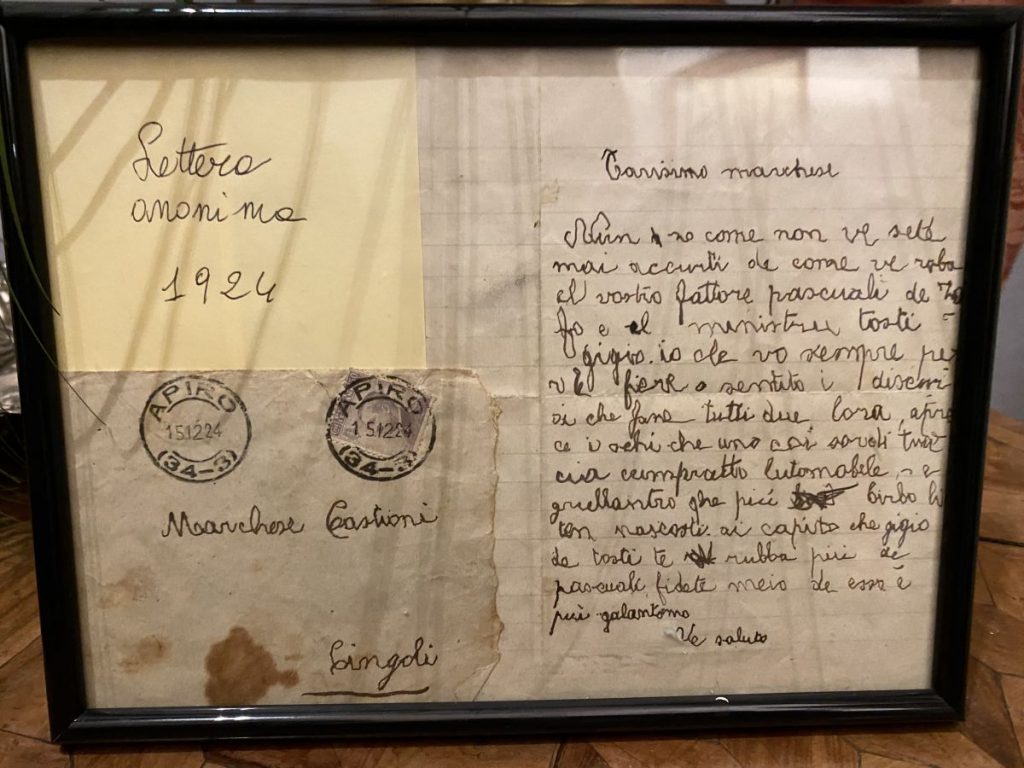 Lettera
anonima
1924
APIRO
15.12.24
(34-3)
APIRO
15.12.24
(34-3)
Marchese Castioni
Cingoli
Carisimo marchese
Nun so come non ve sete
mai accurti de come ve roba
el vostro fattore pascuali de
fo e el ministru tosti
gigio. io che vo sempre pe
fiere o sentito i discor
si che fano tutti due lora, apre
ce i ochi che uno coi soroli
cia cumpratto lutomobele, e
quellantro che piú birbo li
ten nascosti. ai capito che gigio
de tosti te rubba piú de
pascuali, fidete meio de esso é
piú galantomo
Ve saluto